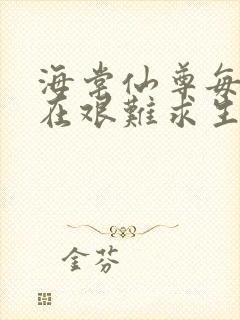 海棠仙尊每
在艰難求生
金芬